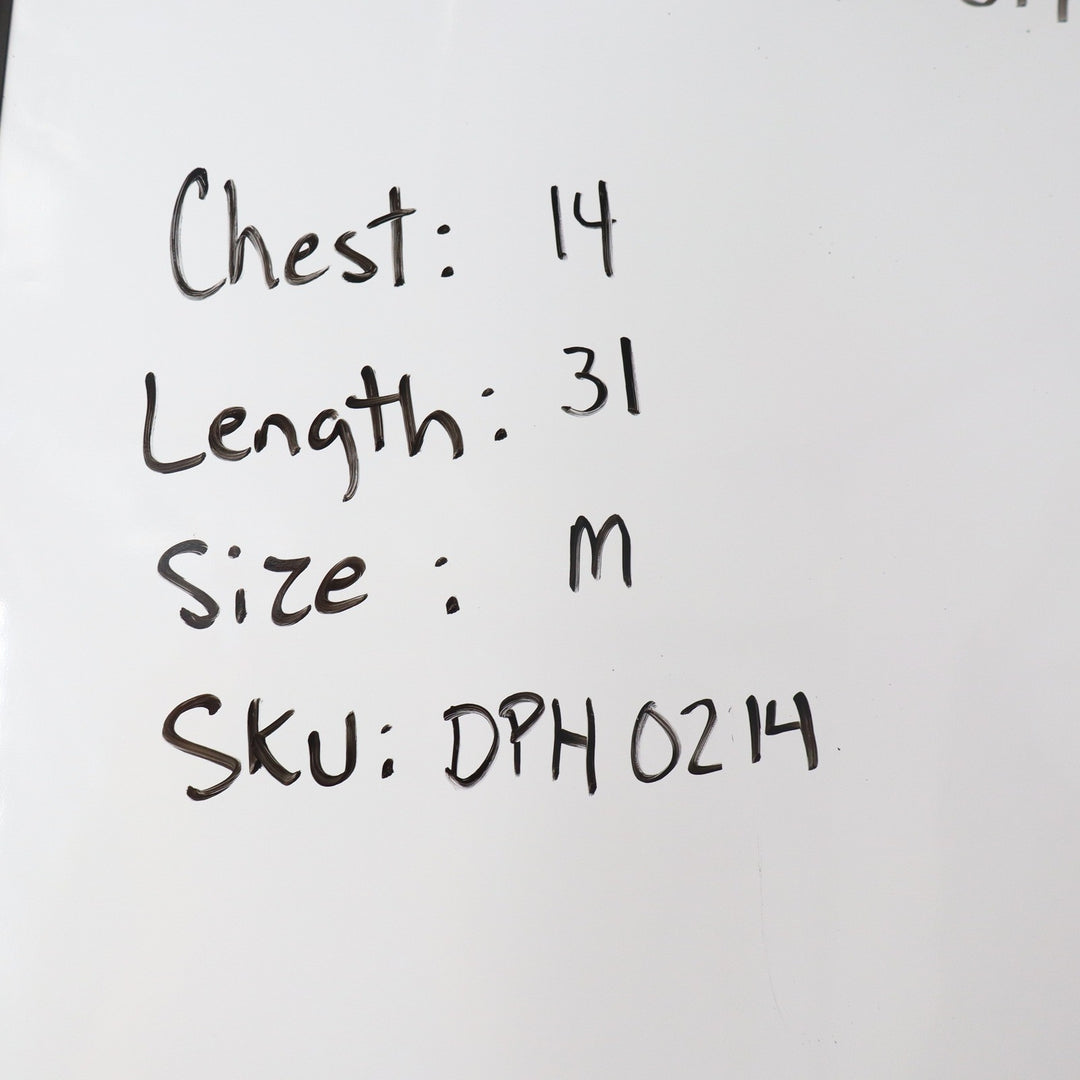 Chest: 14
Length: 31
Size : M
SKU: DPH 0214